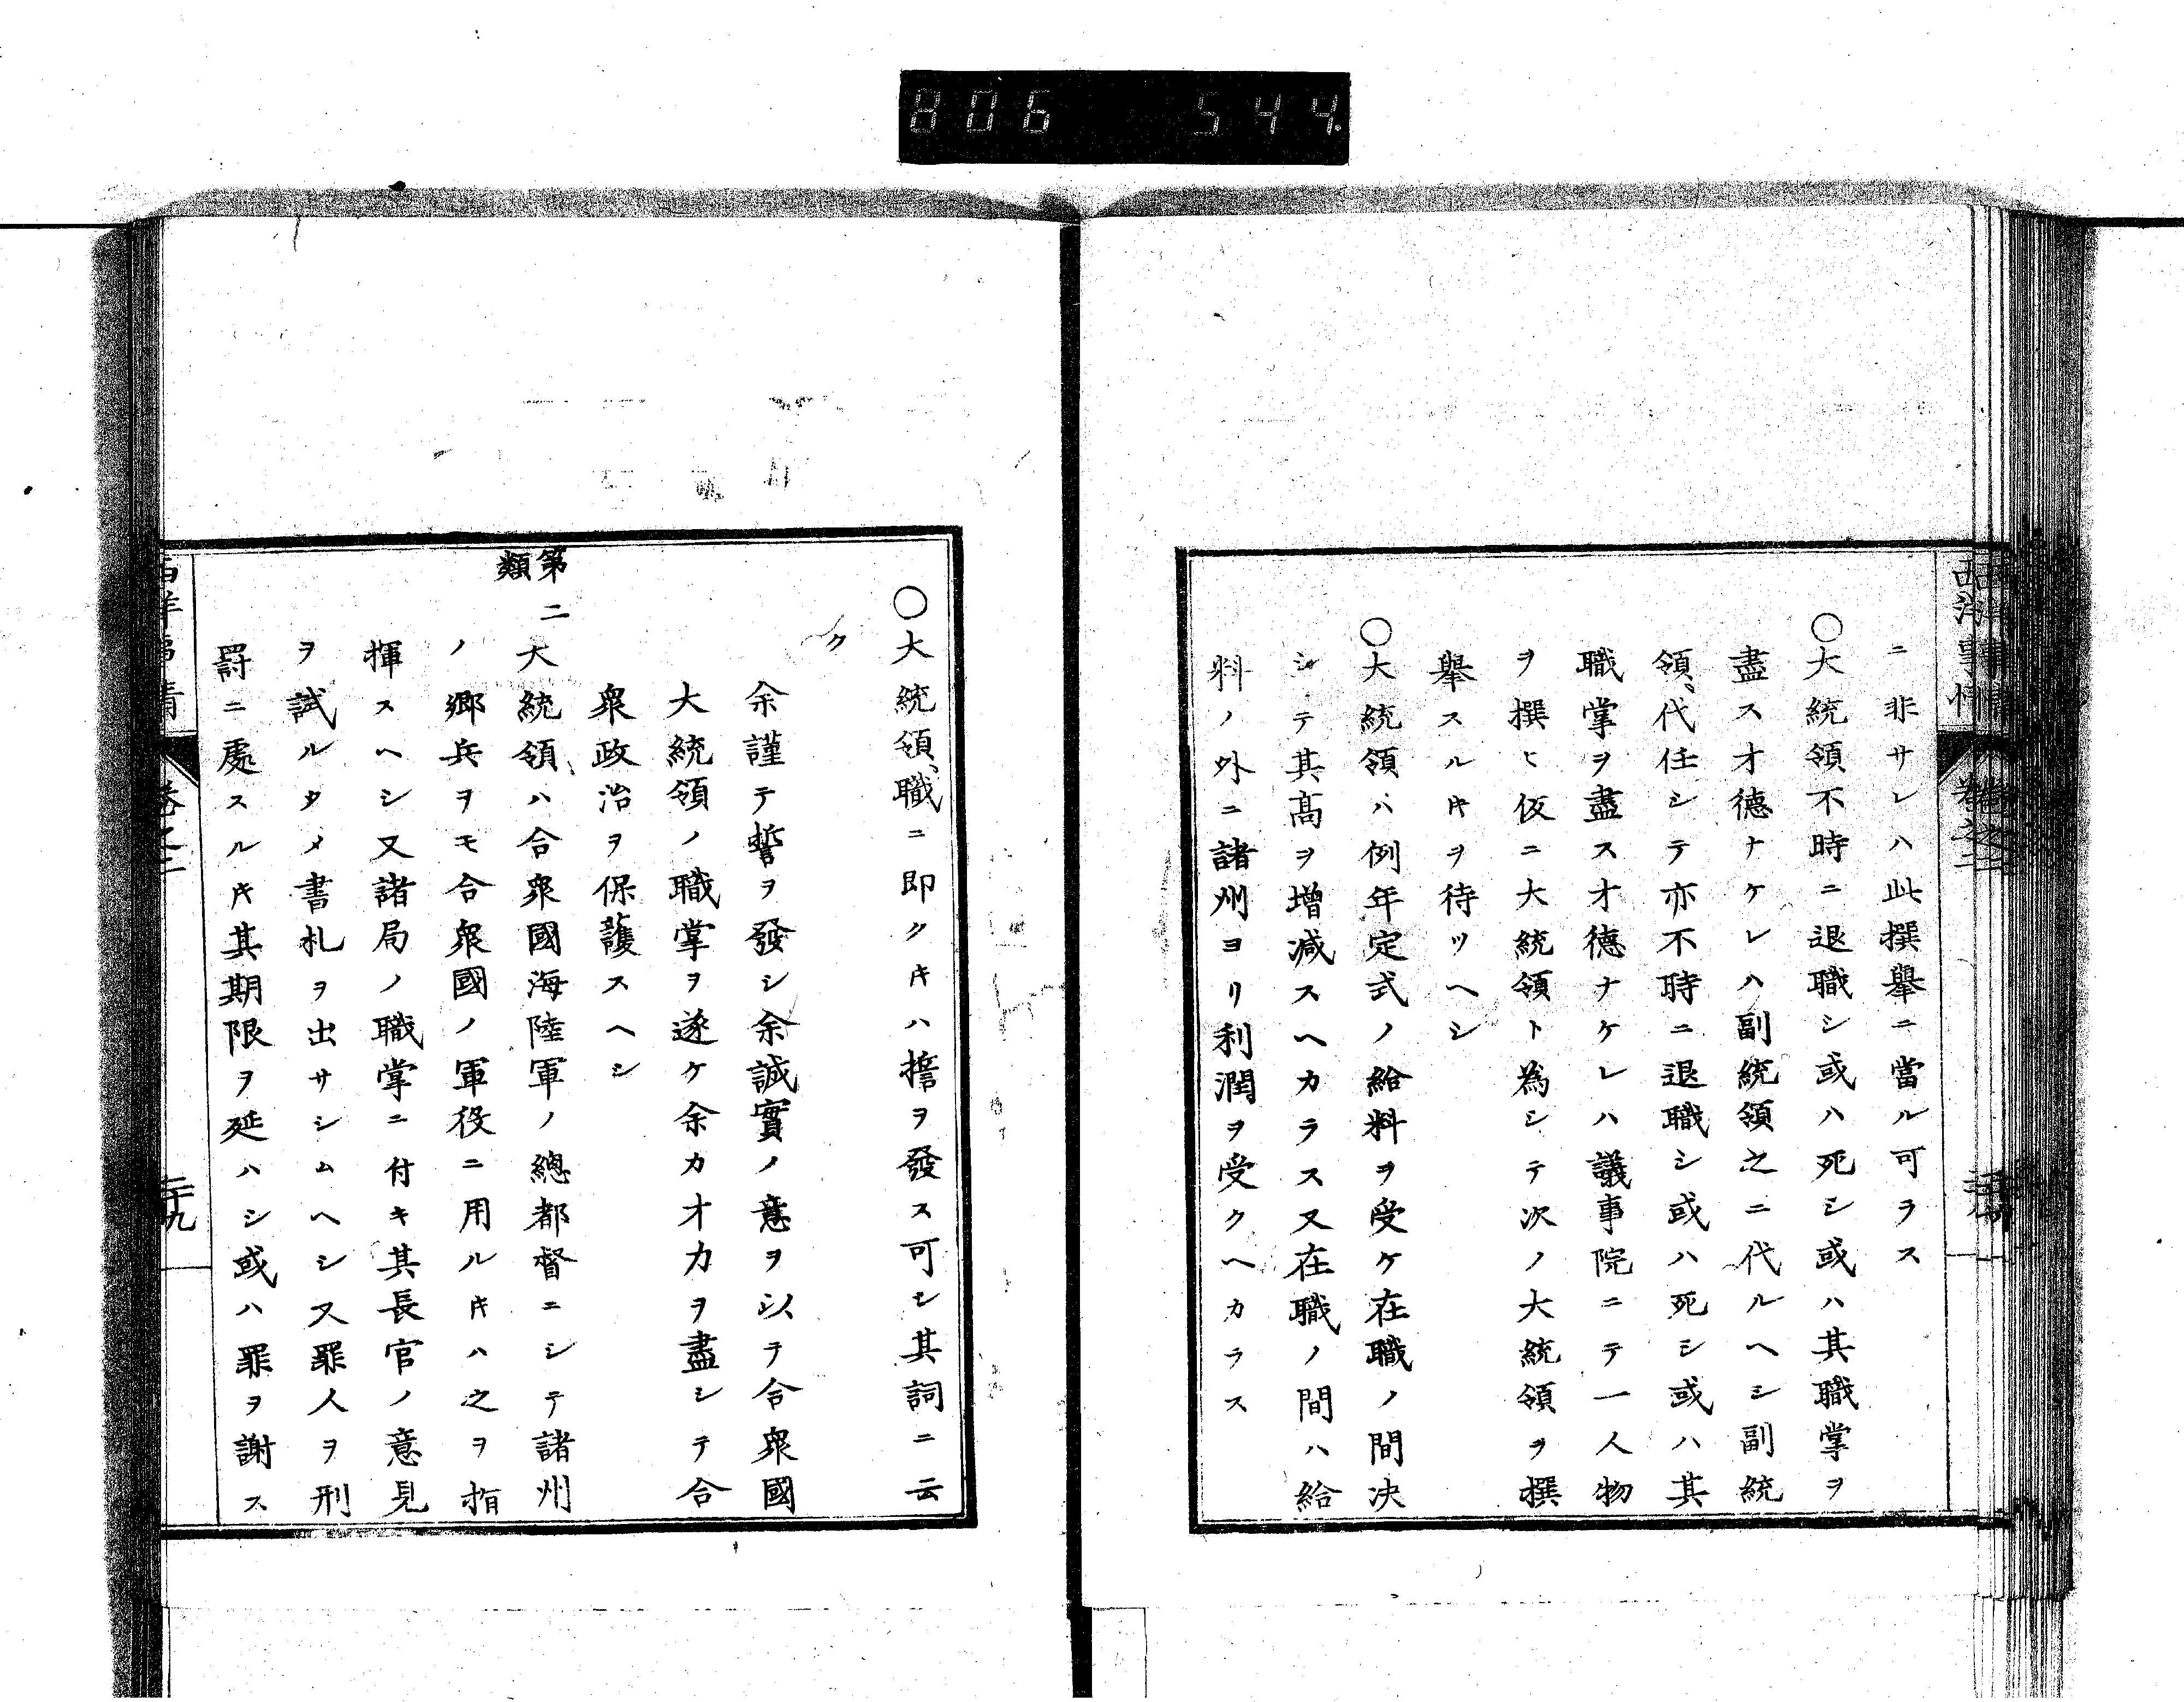 806 544.
西洋事情 卷之二
ニ非サレハ此撰擧ニ當ル可ラス
○大統領不時ニ退職シ或ハ死シ或ハ其職掌ヲ
盡スオ德ナケレハ副統領之ニ代ルヘシ副統
領、代任シテ亦不時ニ退職シ或ハ死シ或ハ其
職掌ヲ盡スオ德ナケレハ議事院ニテ一人物
ヲ撰ヒ仮ニ大統領ト為シテ次ノ大統領ヲ撰
擧スルキヲ待ツヘシ
○大統領ハ例年定式ノ給料ヲ受ケ在職ノ間决
シテ其高ヲ增减スヘカラス又在職ノ間ハ給
料ノ外ニ諸州ヨリ利潤ヲ受クヘカラス
○大統領、職ニ即クキハ誓ヲ發ス可シ其詞ニ云
ク
余謹テ誓ヲ發シ余誠實ノ意ヲ以テ合衆國
大統領ノ職掌ヲ遂ケ余カオカヲ盡シテ合
衆政治ヲ保護スヘシ
第二類
大統領、ハ合衆國海陸軍ノ總都督ニシテ諸州
ノ鄉兵ヲモ合衆國ノ軍役ニ用ルキハ之ヲ指
揮スヘシ又諸局ノ職掌ニ付キ其長官ノ意見
ヲ試ルタメ書札ヲ出サシムヘシ又罪人ヲ刑
罸ニ處スルキ其期限ヲ延ハシ或ハ罪ヲ謝ス
西洋事情 卷之二 二十九